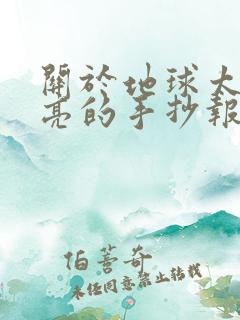 關於地球太
亮的手抄報
伯薈奇
未經同意禁止轉載